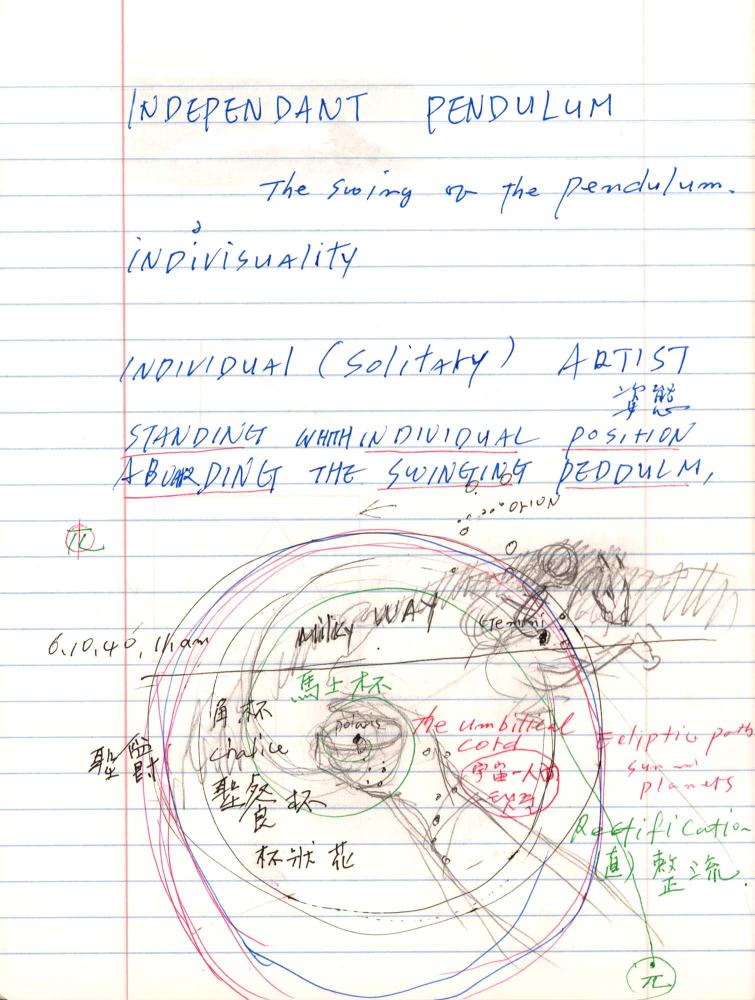 INDEPENDANT PENDULUM
The swing of the pendulum.
d
INDIVISUALITY
INDIVIDUAL (Solitary) ARTIST
姿態
STANDING WHTH INDIVIDUAL POSITION
THE SWINGING PEDDULM,
ORION
Milky WAY
Gemini
6,10,40, 11am
馬上杯
角杯
polaris
the umbilical
cord
Ecliptic path
sun
planets
chalice
聖爵
聖餐杯
宇宙一人
杯狀花
Rectification
(直) 整流.
π